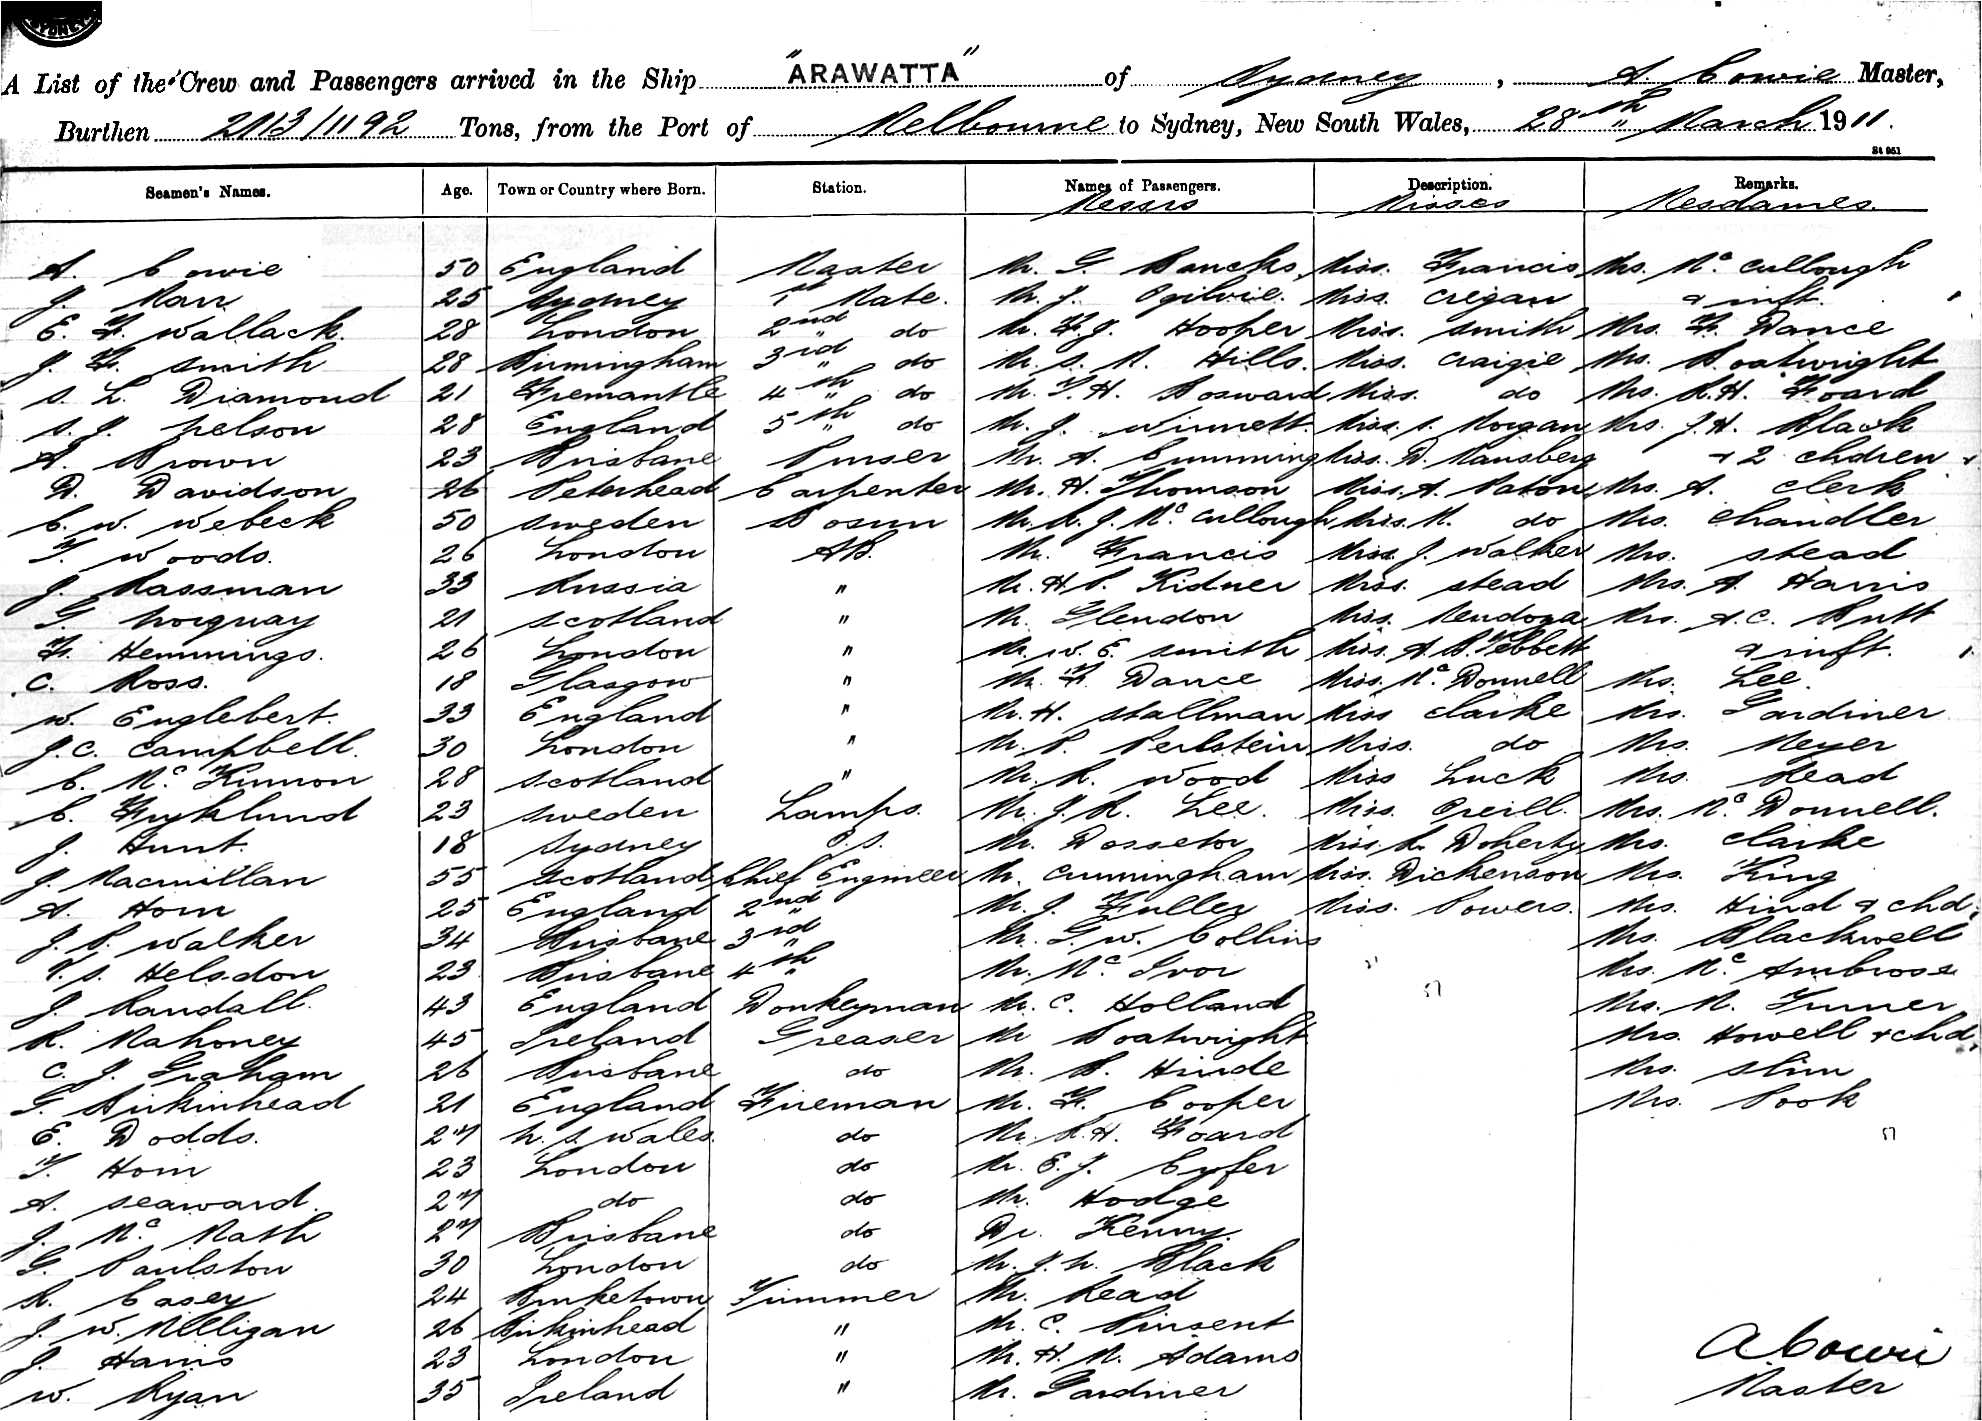 SYDNEY
A List of the Crew and Passengers arrived in the Ship "ARAWATTA" of Sydney, A. Cowie Master,
Burthen 2113/1192 Tons, from the Port of Melbourne to Sydney, New South Wales, 28th March 1911.
St 951
Seamen's Names. Age. Town or Country where Born. Station. Names of Passengers. Description. Remarks.
Messrs Misses Mesdames.
A. Cowie 50 England Master Mr. G. Bancks, Miss. Francis Mrs. McCullough
J. Marr 25 Sydney 1st Mate. Mr. J. Ogilvie. Miss. Cregan & inft.
E. F. Wallack. 28 London 2nd " do Mr. F. J. Hooper Miss. Smith Mrs. F. Dance
J. F. Smith 28 Birmingham 3rd " do Mr. S. M. Hills. Miss. Craigie Mrs. Boatwright
S. L. Diamond 21 Fremantle 4th " do Mr. T. H. Bosward Miss. do Mrs. R. H. Foard
S. J. Nelson 28 England 5th " do Mr. J. Winnett. Miss. S. Morgan Mrs. J. H. Black
A. Brown 23 Brisbane Purser Mr. A. Cumming Miss. D. Mansberg & 2 chdren
D. Davidson 26 Peterhead Carpenter Mr. H. Thomson Miss. A. Paton Mrs. A. Clerk
C. W. Webeck 50 Sweden Bosun Mr. R. J. McCullough Miss. M. do Mrs. Chandler
T. Woods. 26 London AB. Mr. Francis Miss. J. Walker Mrs. Stead
J. Massman 33 Russia " Mr. H. P. Kidner Miss. Stead Mrs. A. Harris
G. Norquay 21 Scotland " Mr. Glendon Miss. Mendoza Mrs. A. C. Butt
F. Hemmings. 26 London " Mr. W. E. Smith Miss. A. B. Tebbett & inft.
C. Ross. 18 Glasgow " Mr. F. Dance Miss. McDonnell Mrs. Lee.
W. Englebert. 33 England " Mr. H. Stallman Miss Clarke Mrs. Gardiner
J. C. Campbell. 30 London " Mr. P. Perlstein Miss. do Mrs. Meyer
C. McKinnon 28 Scotland " Mr. R. Wood Miss Luck Mrs. Read
C. Fryklund 23 Sweden Lamps. Mr. J. R. Lee. Miss. Mrs. McDonnell.
J. Hunt. 18 Sydney O.S. Mr. Dossetor Miss. L. Doherty Mrs. Clarke
J. Macmillan 55 Scotland Chief Engineer Mr. Cunningham Miss. Dickenson Mrs. King
A. Horn 25 England 2nd " Mr. J. Fuller Miss. Powers. Mrs. Hind & chd.
J. P. Walker 34 Brisbane 3rd " Mr. G. W. Collins Mrs. Blackwell
P. S. Helsdon 23 Brisbane 4th " Mr. McIvor Mrs. McAmbrose
J. Randall. 43 England Donkeyman Mr. C. Holland Mrs. M. Turner
R. Mahoney 45 Ireland Greaser Mr Boatwright Mrs. Howell & chd.
C. J. Graham 26 Brisbane do Mr. B. Hinde Mrs. Slim
G. Birkinhead 21 England Fireman Mr. F. Cooper Mrs. Pook
E. Dodds. 27 N. S. Wales. do Mr. R. H. Foard
T. Horn 23 London do Mr. E. J. Cyfer
A. Seaward. 27 do do Mr. Hodge
J. McMath 27 Brisbane do Dr. Kenny.
G. Paulston 30 London do Mr. J. H. Black
R. Casey 24 Burketown Trimmer Mr. Read
J. W. Milligan 26 Birkinhead " Mr. C. Pinsent
J. Harris 23 London " Mr. H. M. Adams
W. Ryan 35 Ireland " Mr. Gardiner
A Cowie
Master